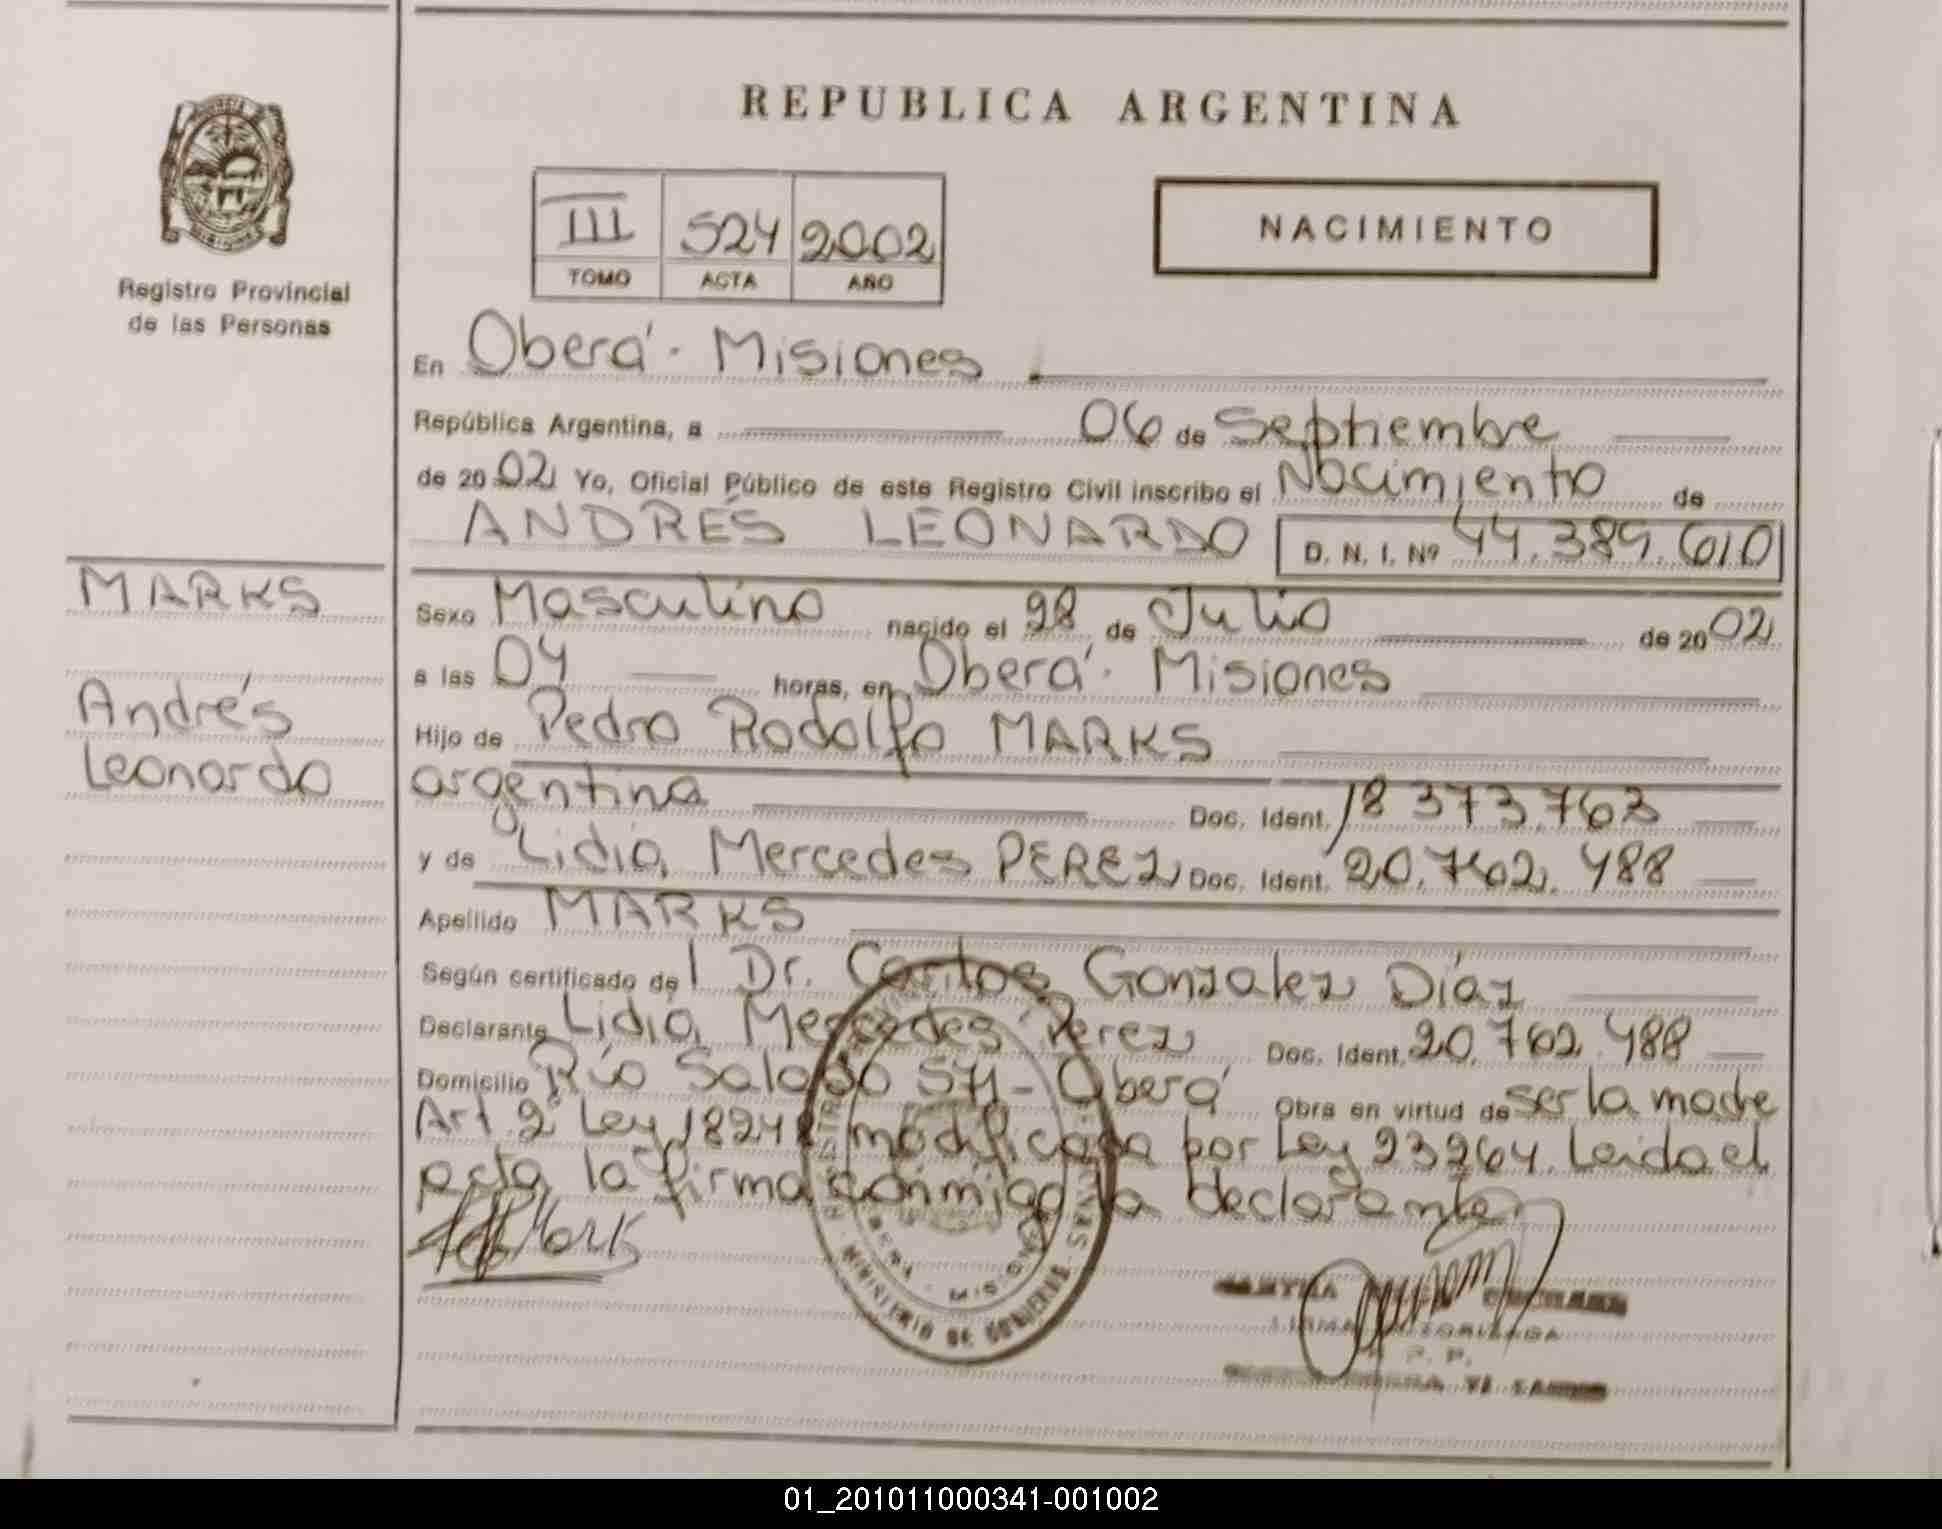 REPUBLICA ARGENTINA
III 524 2002
TOMO ACTA AÑO
NACIMIENTO
Registro Provincial
de las Personas
MARKS
Andrés
Leonardo
En Oberá - Misiones
República Argentina, a 06 de Septiembre
de 2002 Yo, Oficial Público de este Registro Civil inscribo el Nacimiento de
ANDRÉS LEONARDO D. N. I. Nº 44.389.610
Sexo Masculino nacido el 28 de Julio de 2002
a las 04 horas, en Oberá - Misiones
Hijo de Pedro Rodolfo MARKS
argentina Doc. Ident. 18373.763
y de Lidia Mercedes PEREZ Doc. Ident. 20.762.488
Apellido MARKS
Según certificado de l Dr. Carlos Gonzalez Díaz
Declarante Lidia Mercedes Perez Doc. Ident. 20.762.488
Domicilio Río Salado 571 - Oberá Obra en virtud de ser la madre
Art. 2º Ley 18248 modificada por Ley 23264. Leida el
acta la firma conmigo la declarante
MINISTERIO DE GOBIERNO
OBERA - MISIONES
01_201011000341-001002